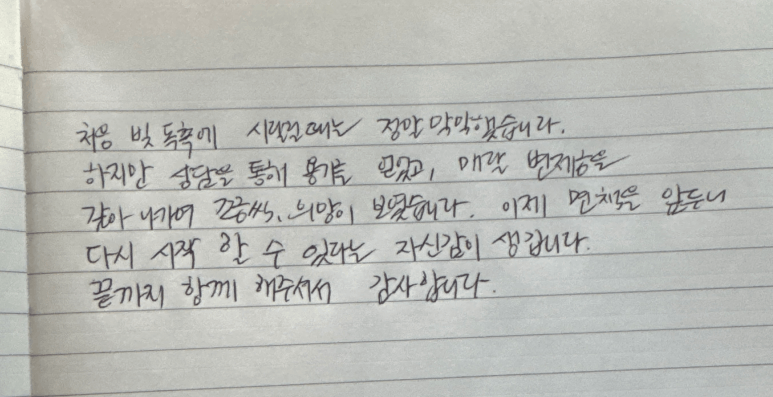 처음 빚 독촉에 시달릴 때는 정말 막막했습니다.
하지만 상담을 통해 용기를 얻었고, 매달 변제금을
갚아 나가며 조금씩, 희망이 보였습니다. 이제 면책을 앞두니
다시 시작 할 수 있다는 자신감이 생깁니다.
끝까지 함께 해주셔서 감사합니다.